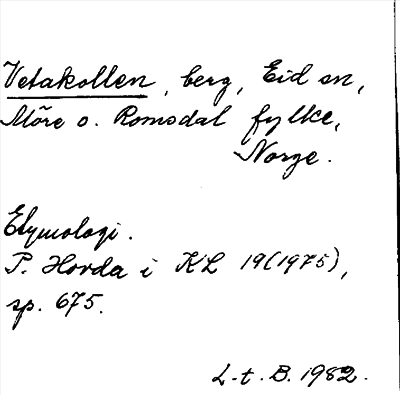 Vetakollen, berg, Eid sn,
Möre o. Romsdal fylke,
Norge.
Etymologi.
P. Hovda i KL 19(1975),
sp. 675.
L-t. B. 1982.